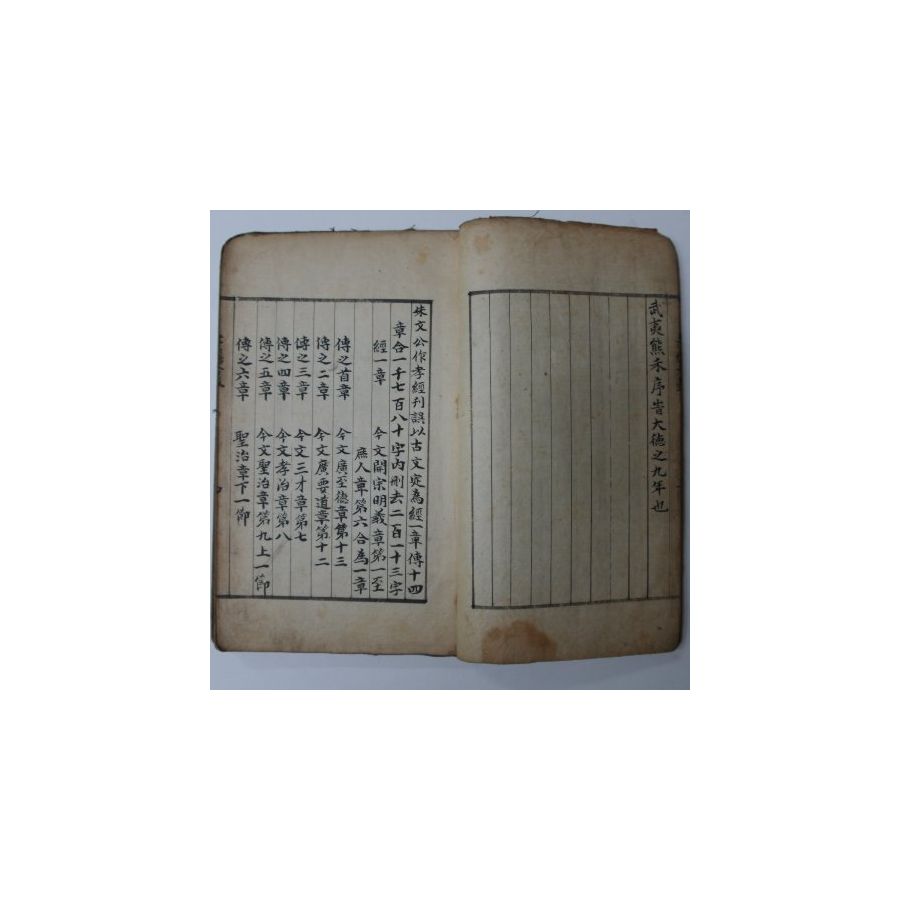 武夷熊禾序旹大德之九年也
朱文公作孝經刊誤以古文定為經一章傳十四
章合一千七百八十字內刪去二百一十三字
經一章 今文開宗明義章第一至
庶人章第六合為一章
傳之首章 今文廣至德章第十三
傳之二章 今文廣要道章第十二
傳之三章 今文三才章第七
傳之四章 今文孝治章第八
傳之五章 今文聖治章第九上一節
傳之六章 聖治章下一節